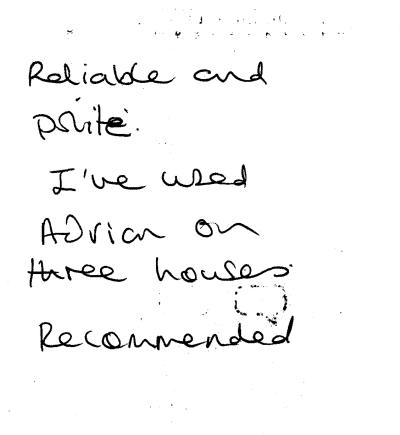 Reliable and
polite.
I've used
Adrian on
three houses.
Recommended